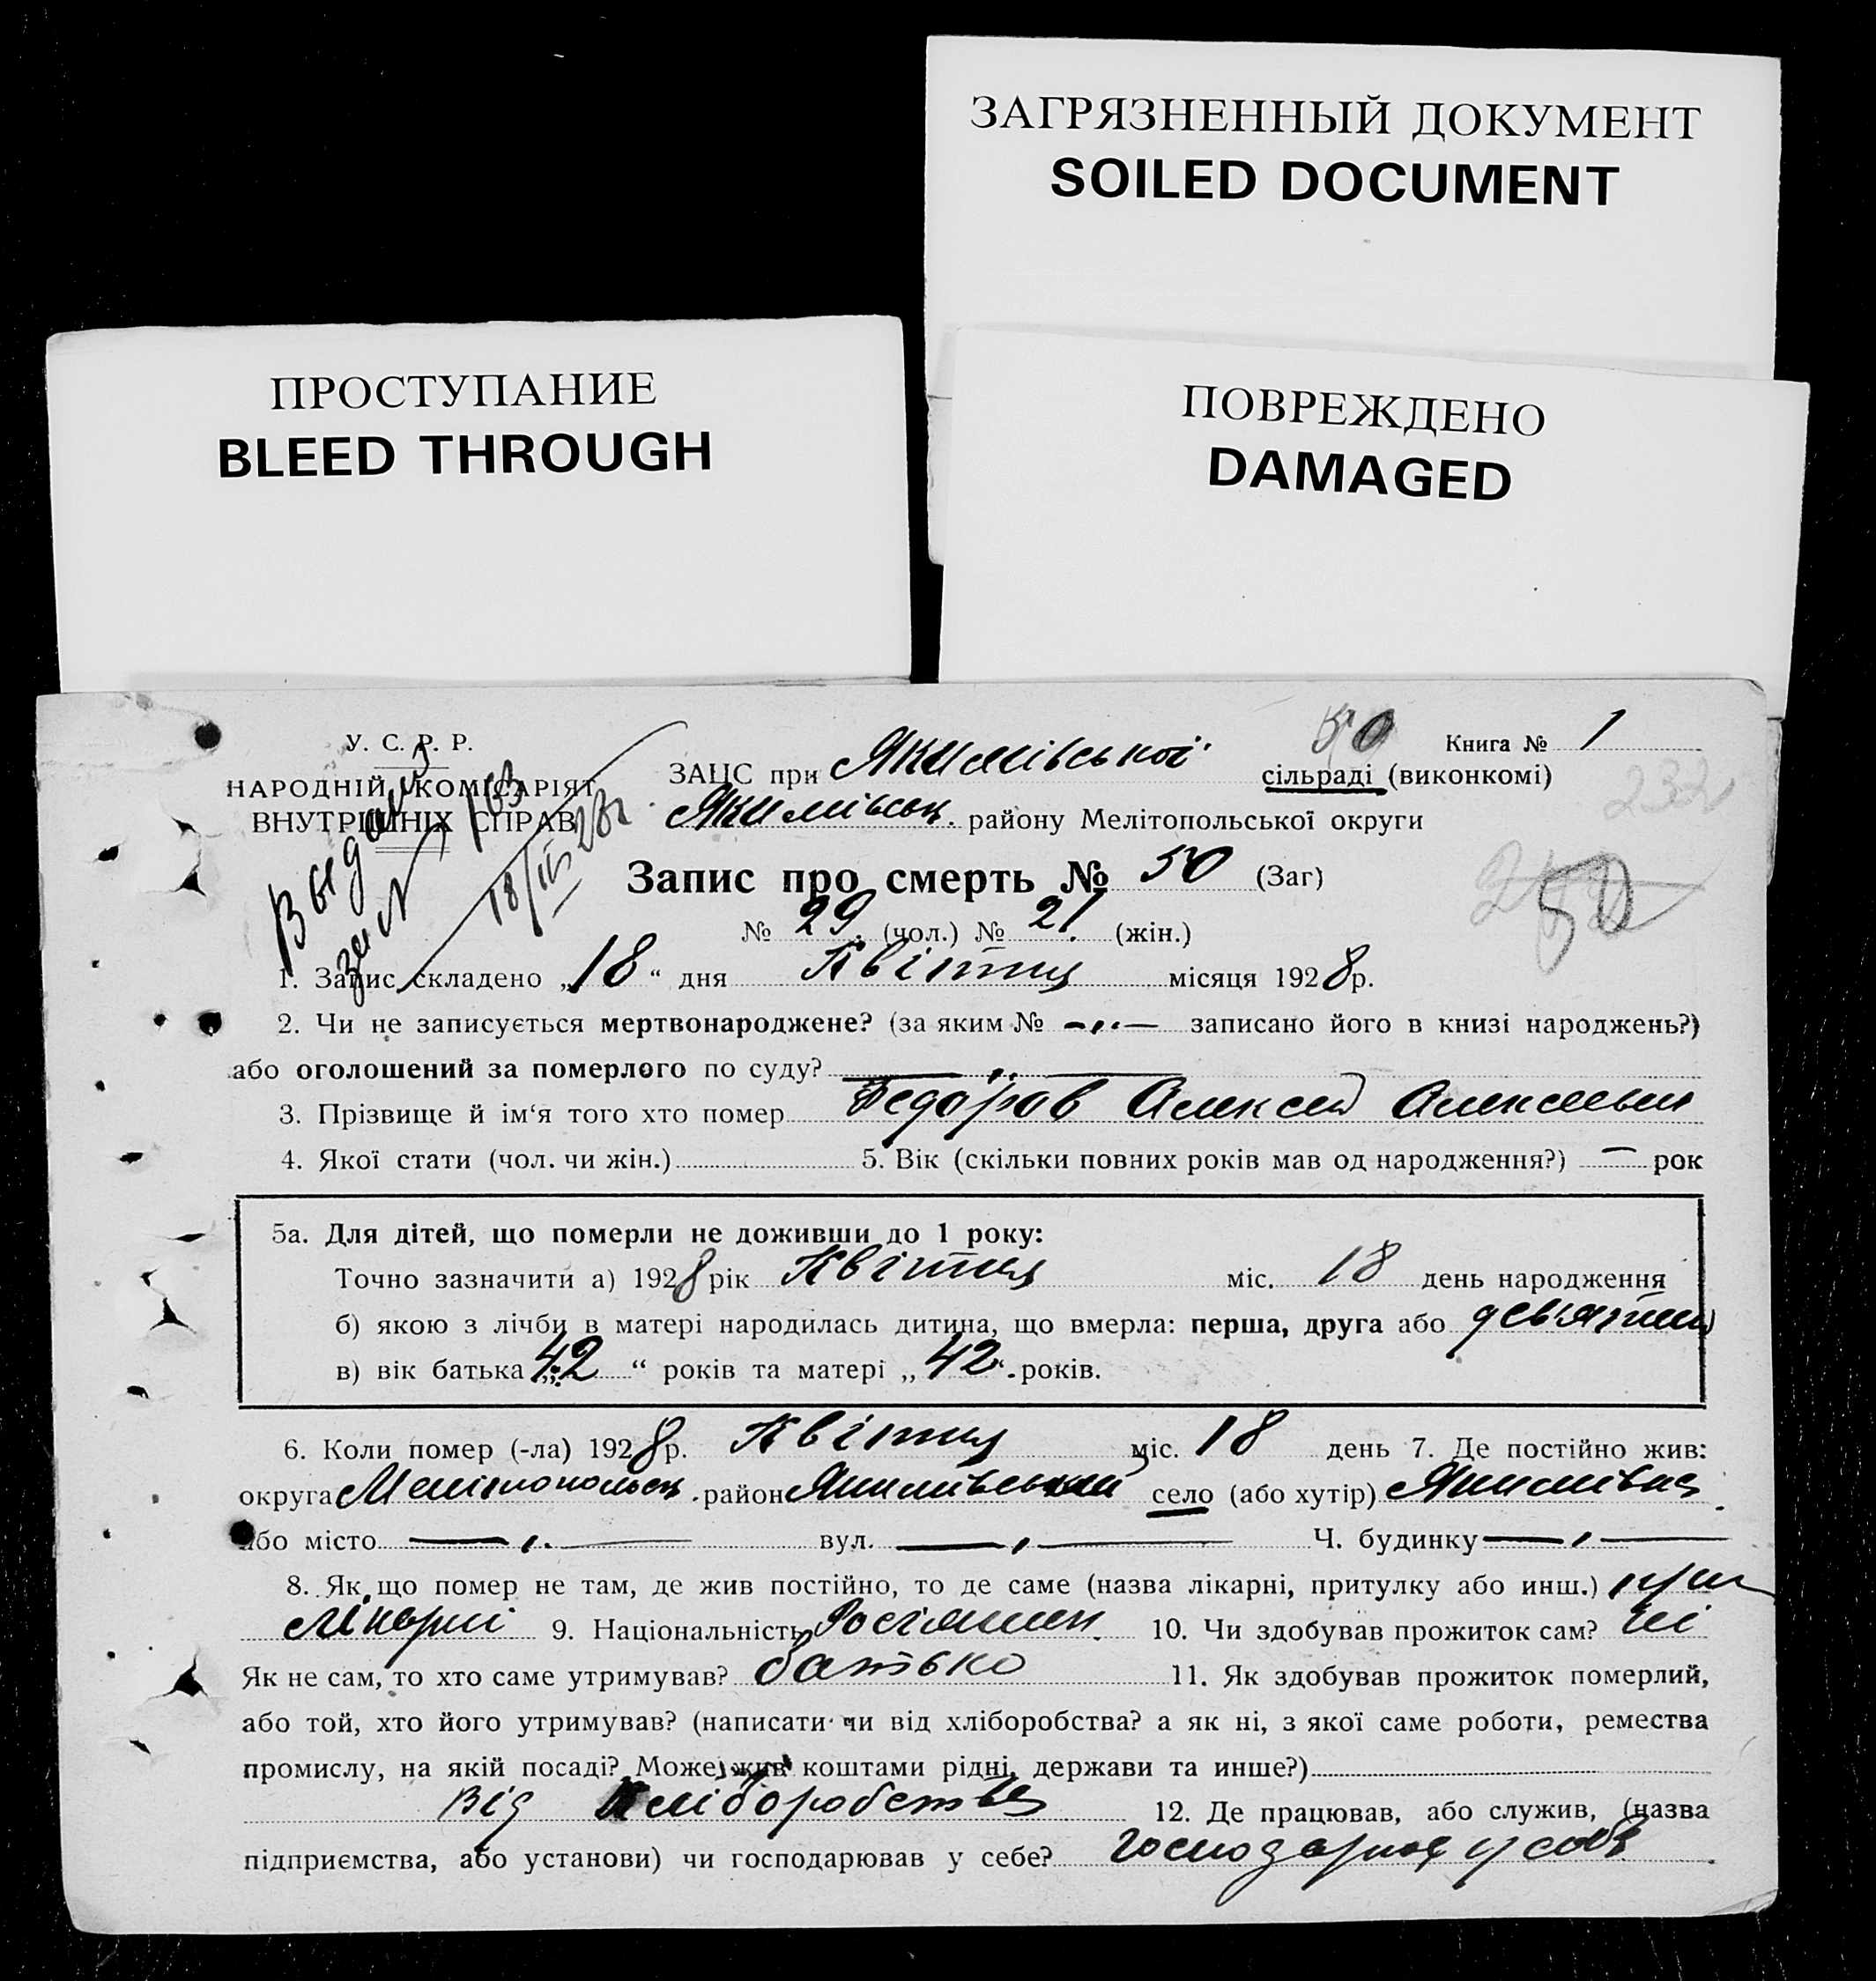 ЗАГРЯЗНЕННЫЙ ДОКУМЕНТ
SOILED DOCUMENT
ПРОСТУПАНИЕ
BLEED THROUGH
ПОВРЕЖДЕНО
DAMAGED
У. С. Р. Р.
НАРОДНІЙ КОМІСАРІЯТ
ВНУТРІШНІХ СПРАВ
50 Книга № 1
ЗАЦС при Якимівської сільраді (виконкомі)
232
Якимівськ. району Мелітопольської округи
за № 163
Запис про смерть № 50 (Заг)
50
№ 29 (чол.) № 21 (жін.)
1. Запис складено „18“ дня Квітня місяця 1928 р.
2. Чи не записується мертвонароджене? (за яким № — записано його в книзі народжень?)
або оголошений за померлого по суду? —
3. Прізвище й ім‘я того хто помер Федоров Алексей Алексеевич
4. Якої стати (чол. чи жін.) 5. Вік (скільки повних років мав од народження?) — рок
5а. Для дітей, що померли не доживши до 1 року:
Точно зазначити а) 1928 рік Квітня міс. 18 день народження
б) якою з лічби в матері народилась дитина, що вмерла: перша, друга або девьята
в) вік батька „42“ років та матері „42“ років.
6. Коли помер (-ла) 1928 р. Квітня міс. 18 день 7. Де постійно жив:
округа Мелітопольськ. район Якимівський село (або хутір) Якимівка
або місто — вул. — Ч. будинку —
8. Як що помер не там, де жив постійно, то де саме (назва лікарні, притулку або инш.) при
лікарні 9. Національність Росіянин 10. Чи здобував прожиток сам? ні
Як не сам, то хто саме утримував? батько 11. Як здобував прожиток померлий,
або той, хто його утримував? (написати чи від хліборобства? а як ні, з якої саме роботи, ремества
промислу, на якій посаді? Може жив коштами рідні, держави та инше?)
від хліборобства 12. Де працював, або служив, (назва
підприємства, або установи) чи господарював у себе? господарював у себе